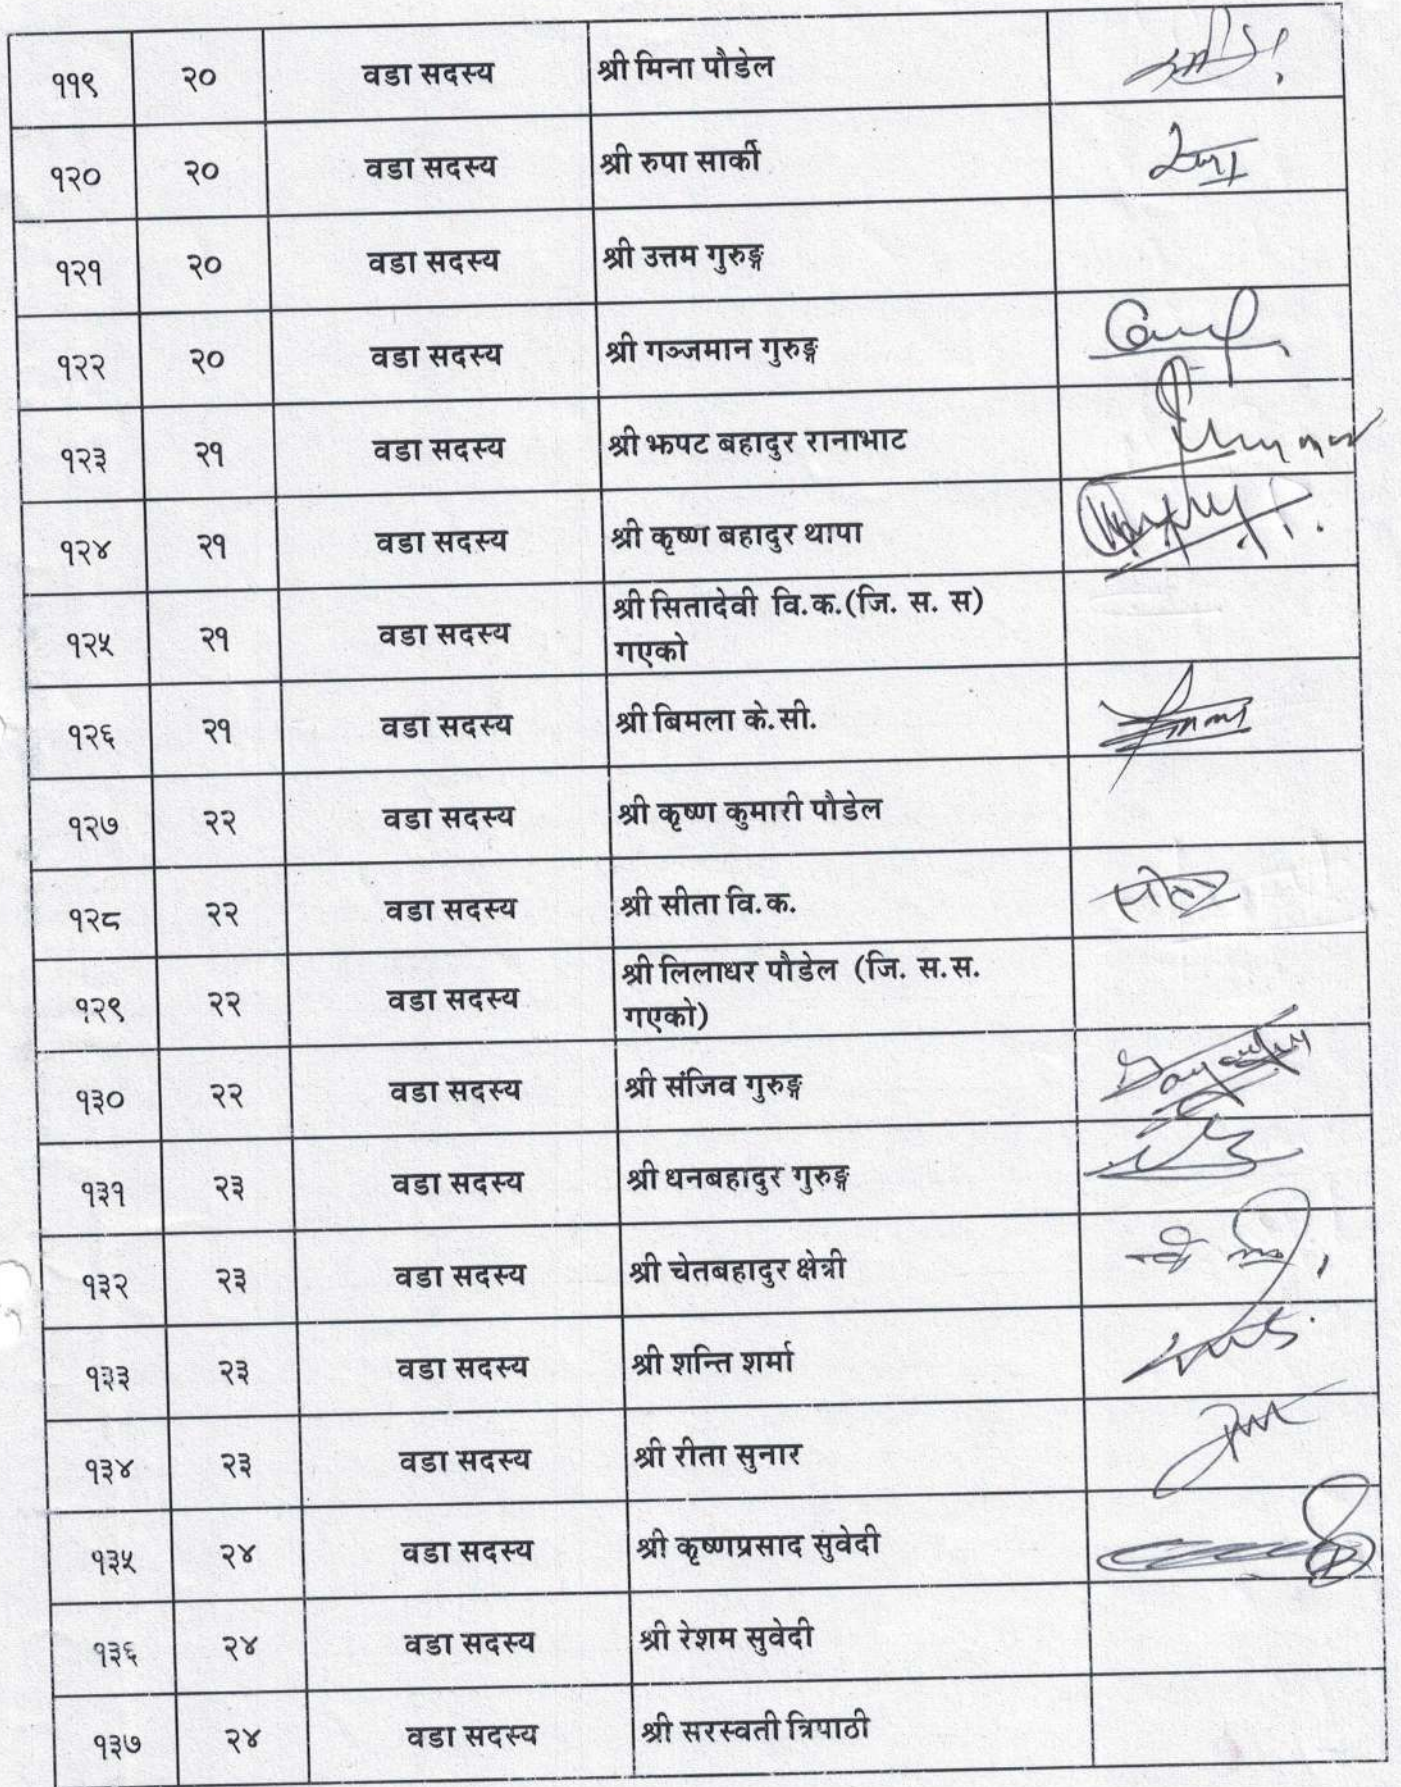 ११९ २० वडा सदस्य श्री मिना पौडेल
१२० २० वडा सदस्य श्री रुपा सार्की
१२१ २० वडा सदस्य श्री उत्तम गुरुङ्ग
१२२ २० वडा सदस्य श्री गञ्जमान गुरुङ्ग
१२३ २१ वडा सदस्य श्री झपट बहादुर रानाभाट
१२४ २१ वडा सदस्य श्री कृष्ण बहादुर थापा
१२५ २१ वडा सदस्य श्री सितादेवी वि.क.(जि. स. स)
गएको
१२६ २१ वडा सदस्य श्री बिमला के.सी.
१२७ २२ वडा सदस्य श्री कृष्ण कुमारी पौडेल
१२८ २२ वडा सदस्य श्री सीता वि.क.
१२९ २२ वडा सदस्य श्री लिलाधर पौडेल (जि. स.स.
गएको)
१३० २२ वडा सदस्य श्री संजिव गुरुङ्ग
१३१ २३ वडा सदस्य श्री धनबहादुर गुरुङ्ग
१३२ २३ वडा सदस्य श्री चेतबहादुर क्षेत्री
१३३ २३ वडा सदस्य श्री शन्ति शर्मा
१३४ २३ वडा सदस्य श्री रीता सुनार
१३५ २४ वडा सदस्य श्री कृष्णप्रसाद सुवेदी
१३६ २४ वडा सदस्य श्री रेशम सुवेदी
१३७ २४ वडा सदस्य श्री सरस्वती त्रिपाठी